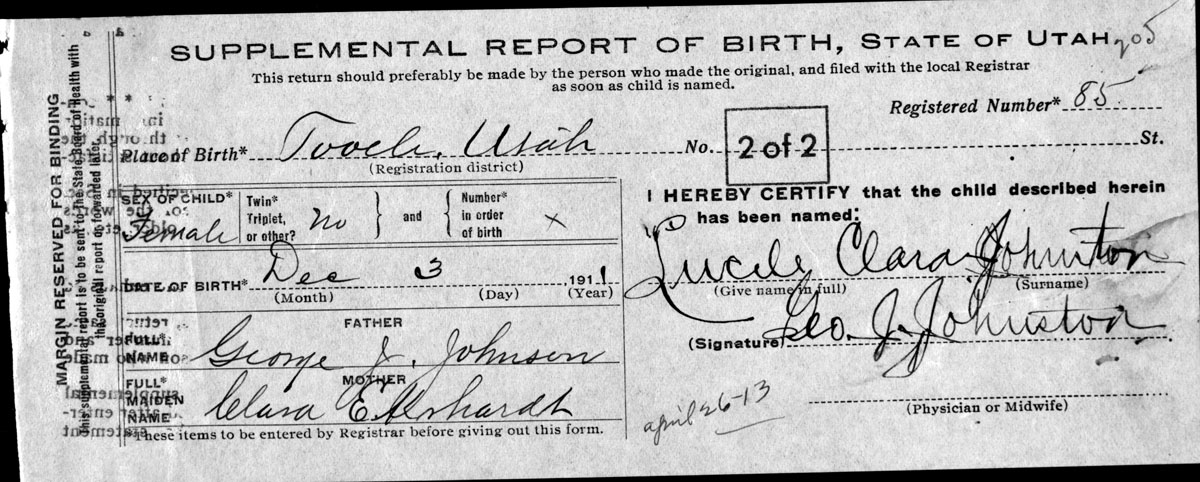 SUPPLEMENTAL REPORT OF BIRTH, STATE OF UTAH 205
This return should preferably be made by the person who made the original, and filed with the local Registrar
as soon as child is named.
Registered Number* 85
Place of Birth* Tooele, Utah No. 2 of 2 St.
(Registration district)
SEX OF CHILD* Female
Twin* Triplet, or other? No
and
Number* in order of birth X
DATE OF BIRTH* Dec 3 1911
(Month) (Day) (Year)
FATHER
FULL* NAME George J. Johnson
MOTHER
FULL* MAIDEN NAME Clara
*These items to be entered by Registrar before giving out this form.
I HEREBY CERTIFY that the child described herein
has been named:
Lucile Clara Johnston
(Give name in full) (Surname)
(Signature) Geo. J. Johnston
(Physician or Midwife)
april 26-13
MARGIN RESERVED FOR BINDING
This supplemental report is to be sent to the State Board of Health with
the original report or forwarded later.